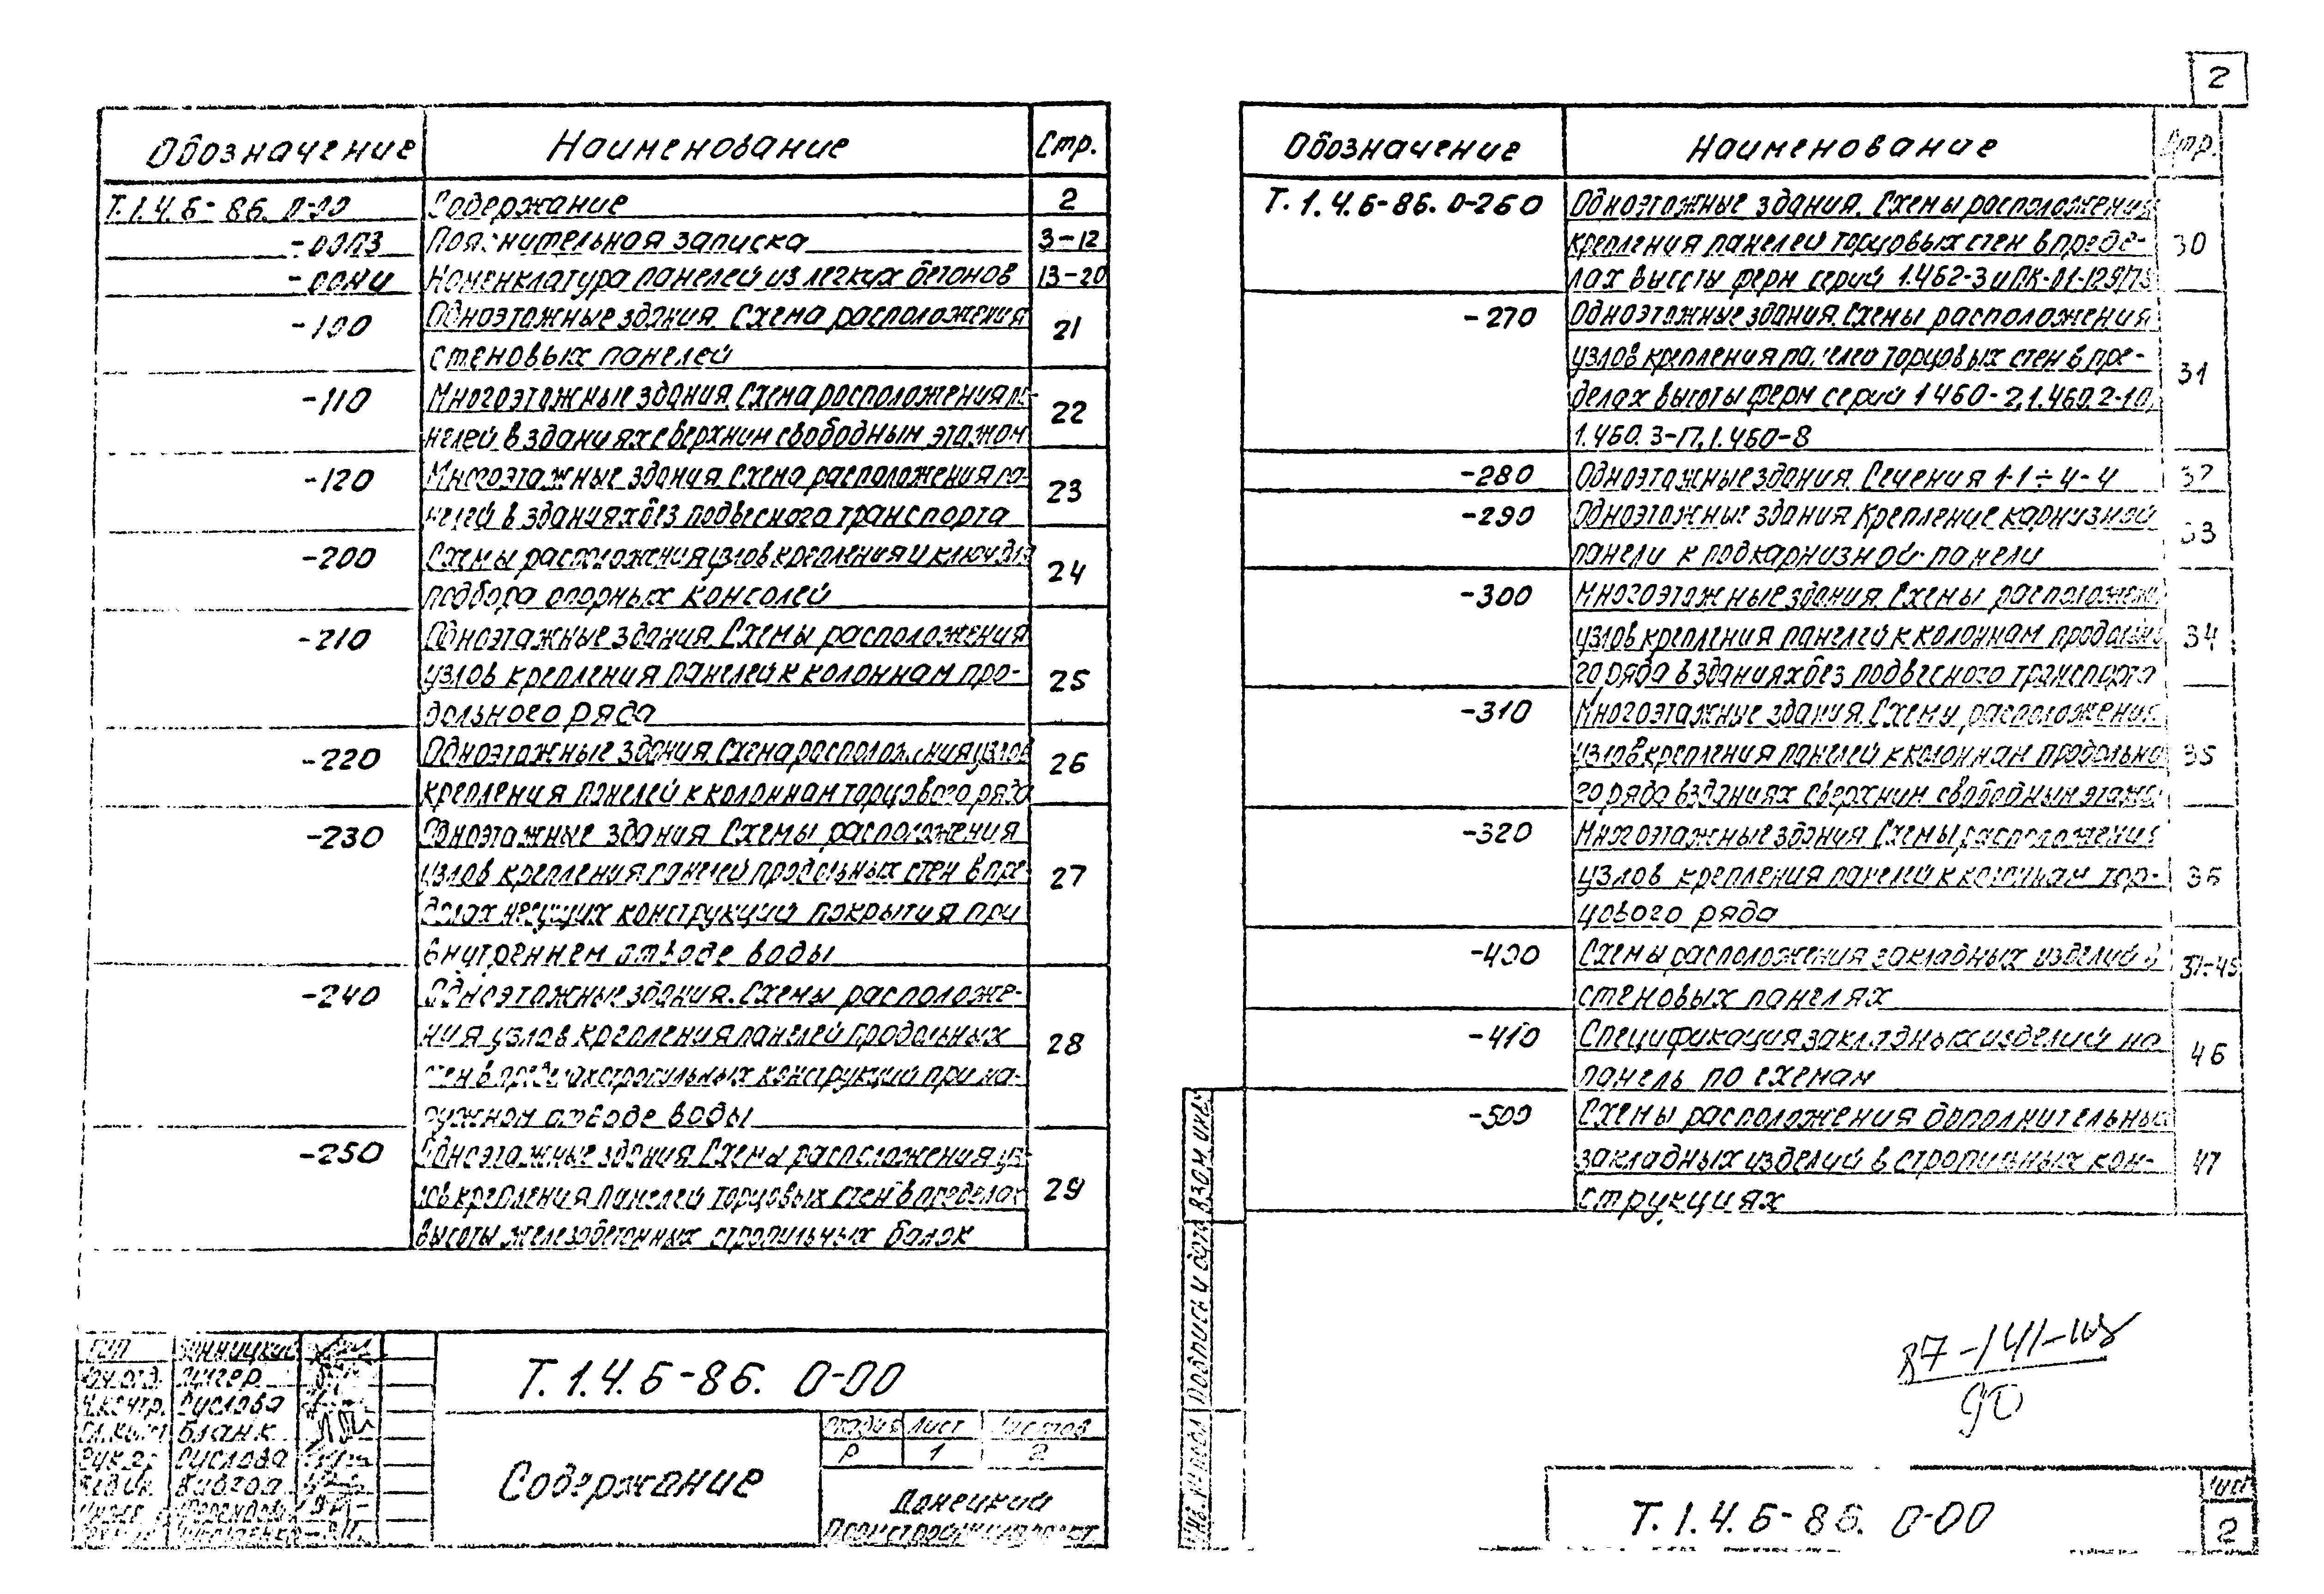 2
Обозначение Наименование Стр.
Т.1.4.Б-86. 0-00 Содержание 2
-00ПЗ Пояснительная записка 3-12
-00НИ Номенклатура панелей из легких бетонов 13-20
-100 Одноэтажные здания. Схема расположения
стеновых панелей 21
-110 Многоэтажные здания. Схема расположения па-
нелей в зданиях с верхним свободным этажом 22
-120 Многоэтажные здания. Схема расположения па-
нелей в зданиях без подвесного транспорта 23
-200 Схемы расположения узлов крепления и ключ для
подбора опорных консолей 24
-210 Одноэтажные здания. Схемы расположения
узлов крепления панелей к колоннам про-
дольного ряда 25
-220 Одноэтажные здания. Схема расположения узлов
крепления панелей к колоннам торцового ряда 26
-230 Одноэтажные здания. Схемы расположения
узлов крепления панелей продольных стен в пре-
делах несущих конструкций покрытия при
внутреннем отводе воды 27
-240 Одноэтажные здания. Схемы расположе-
ния узлов крепления панелей продольных
стен в пределах стропильных конструкций при на-
ружном отводе воды 28
-250 Одноэтажные здания. Схемы расположения уз-
лов крепления панелей торцовых стен в пределах
высоты железобетонных стропильных балок 29
ГИП Винницкий
Лигер
Н.контр. Руслова
Бланк
Рук.гр. Руслова
Т.1.4.Б-86. 0-00
Содержание
Стадия Лист Листов
Р 1 2
Донецкий
Промстройниипроект
Обозначение Наименование Стр.
Т.1.4.Б-86. 0-260 Одноэтажные здания. Схемы расположения
крепления панелей торцовых стен в преде-
лах высоты ферм серий 1.462-3 и ПК-01-129/78 30
-270 Одноэтажные здания. Схемы расположения
узлов крепления панелей торцовых стен в пре-
делах высоты ферм серий 1.460-2, 1.460.2-10,
1.460.3-17, 1.460-8 31
-280 Одноэтажные здания. Сечения 1-1÷4-4 32
-290 Одноэтажные здания. Крепление карнизной
панели к подкарнизной панели 33
-300 Многоэтажные здания. Схемы расположения
узлов крепления панелей к колоннам продольно-
го ряда в зданиях без подвесного транспорта 34
-310 Многоэтажные здания. Схемы расположения
узлов крепления панелей к колоннам продольно-
го ряда в зданиях с верхним свободным этажом 35
-320 Многоэтажные здания. Схемы расположения
узлов крепления панелей к колоннам тор-
цового ряда 36
-400 Схемы расположения закладных изделий в
стеновых панелях 37-45
-410 Спецификация закладных изделий на
панель по схемам 46
-500 Схемы расположения дополнительных
закладных изделий в стропильных кон-
струкциях 47
Инв. № подл Подпись и дата Взам инв.
Т.1.4.Б-86. 0-00
Лист
2